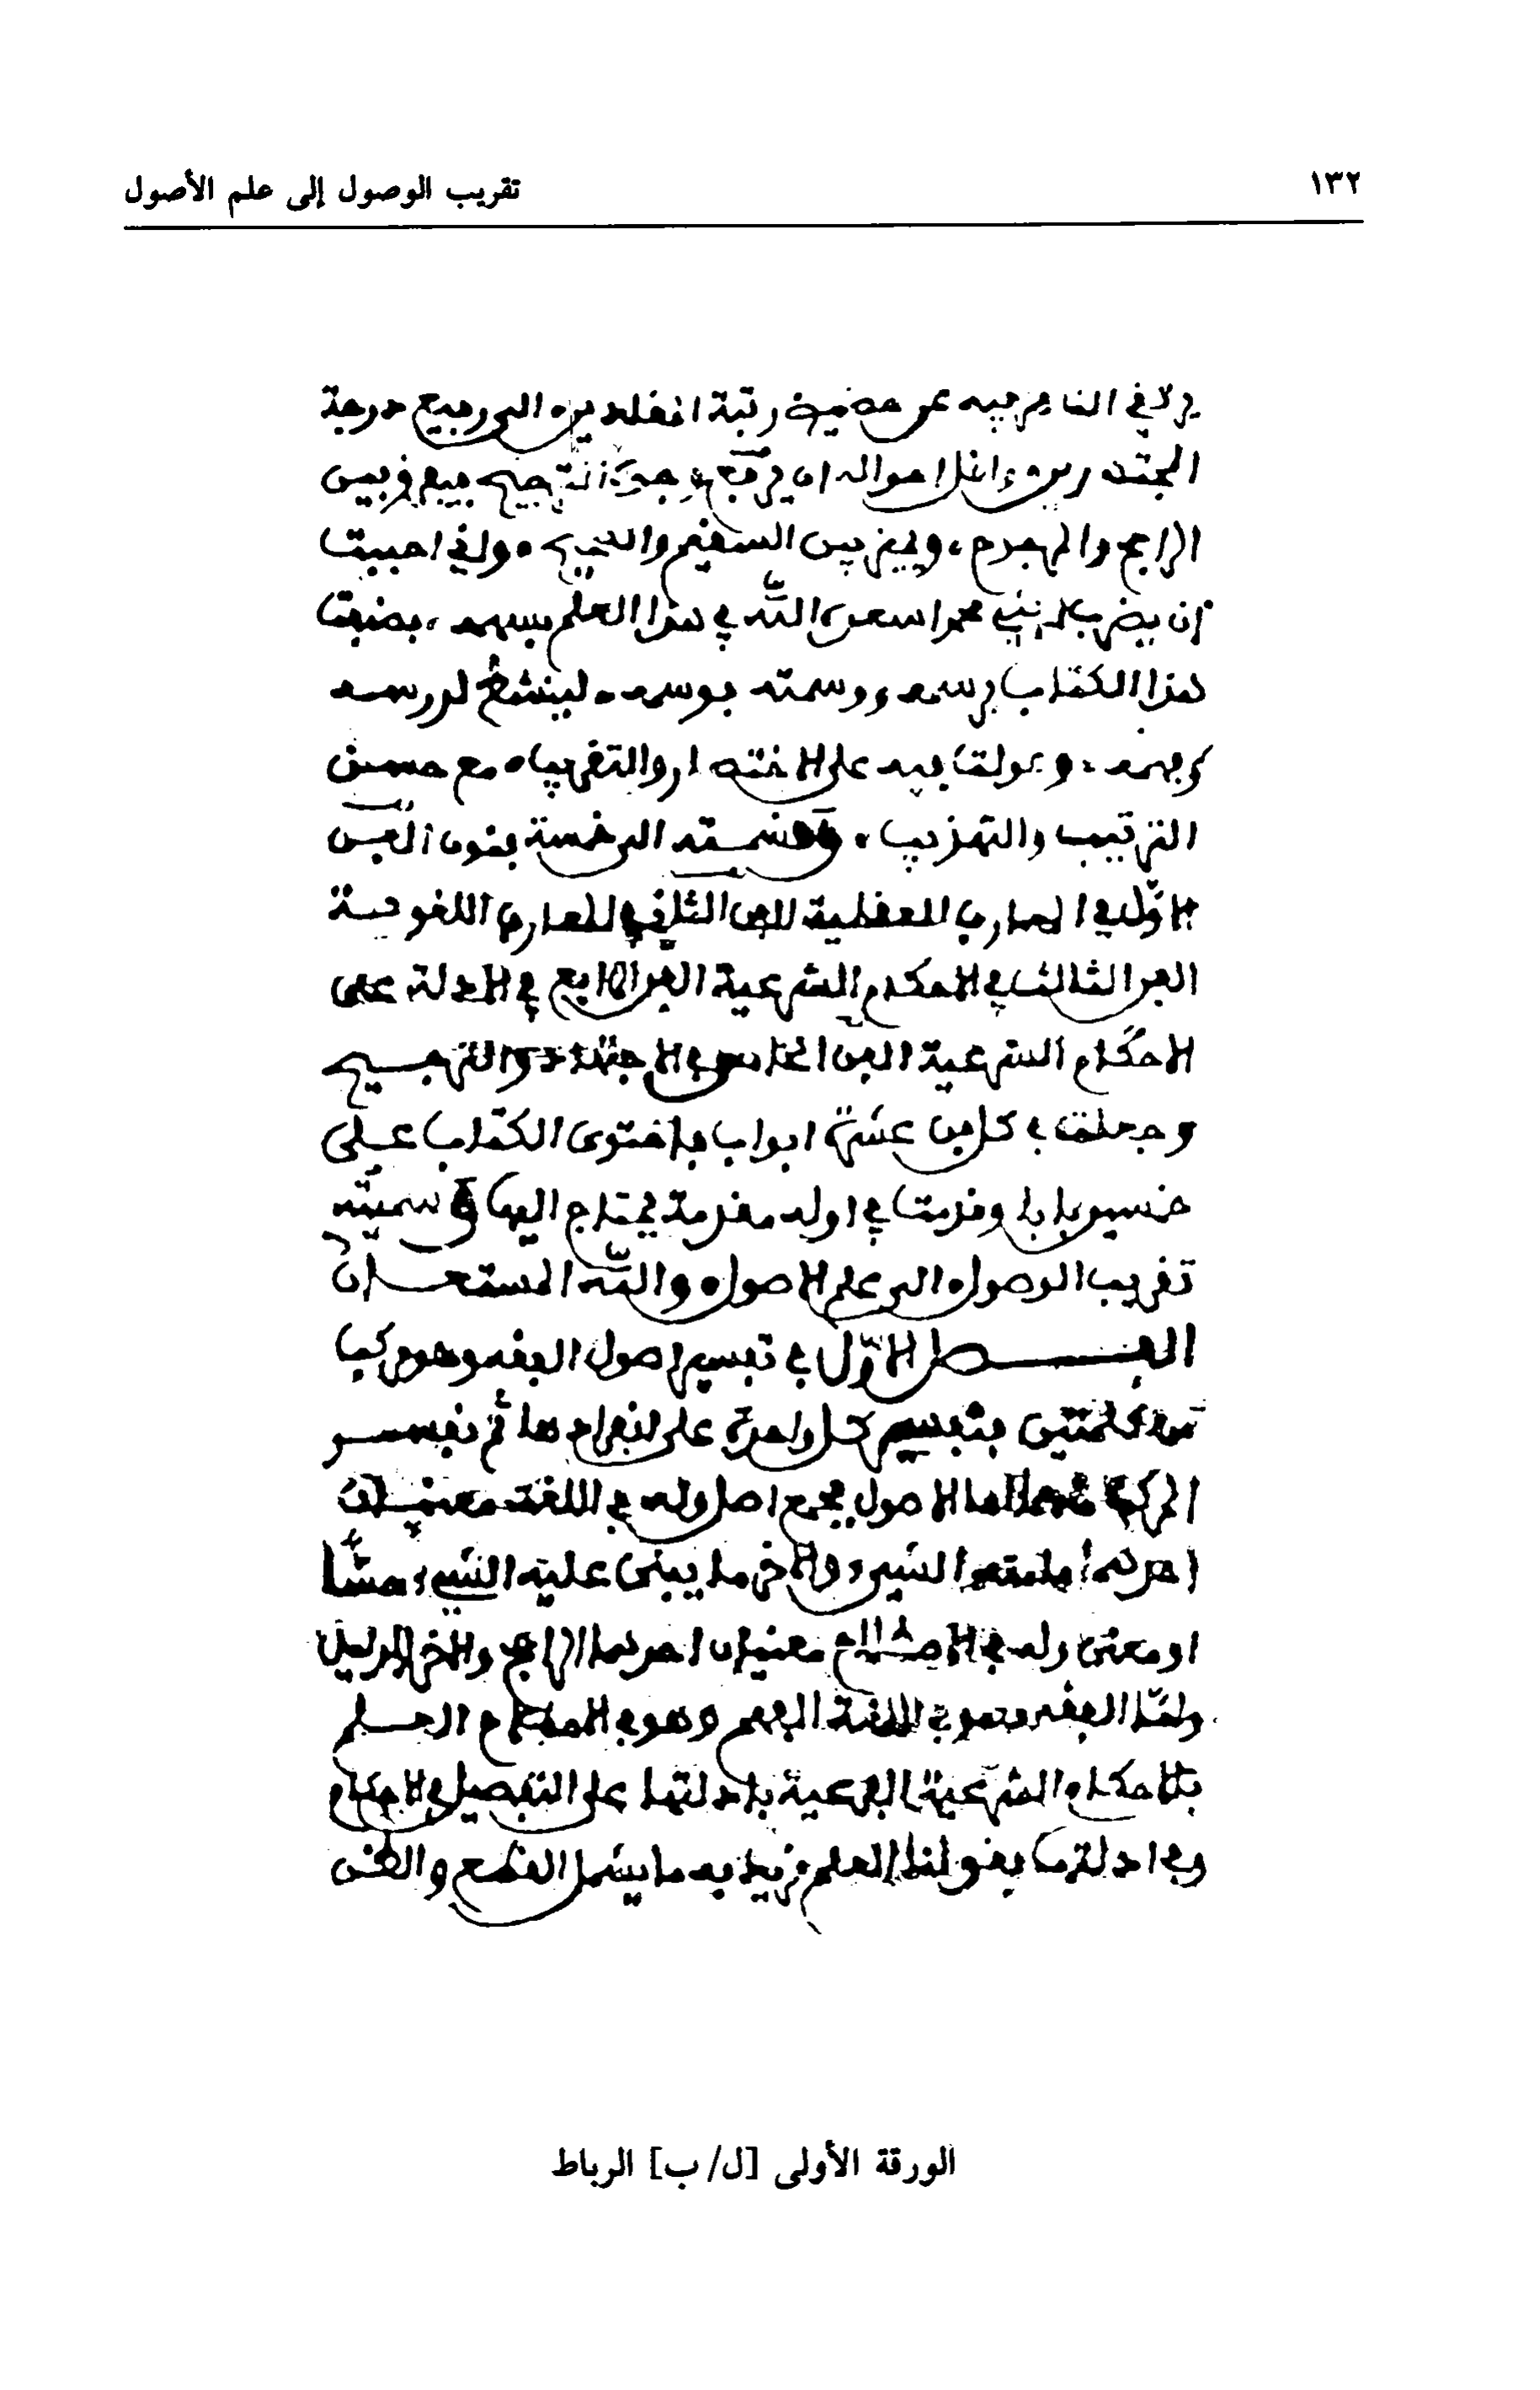 ١٣٢
تقريب الوصول إلى علم الأصول
يرتقي الناظر فيه عن حضيض رتبة المقلدين الى رفيع درجة
المجتهدين واقل احواله ان يعرف وجوه الترجيح فيفرق بين
الراجح والمرجوح ويميز بين السقيم والصحيح واني احببت
ان يضرب ابني محمد اسعده الله في هذا العلم بسهم فصنفت
هذا الكتاب برسمه ووسمته بوسمه لينشط لدرسه
وفهمه وعولت فيه على الاختصار والتقريب مع حسن
الترتيب والتهذيب وقسمته الى خمسة فنون الفن
الاول في المعارف العقلية الفن الثاني في المعارف اللغوية
الفن الثالث في الاحكام الشرعية الفن الرابع في الادلة على
الاحكام الشرعية الفن الخامس في الاجتهاد والترجيح
وجعلت في كل فن عشرة ابواب فاحتوى الكتاب على
خمسين بابا وقدمت في اوله مقدمة يحتاج اليها وسميته
تقريب الوصول الى علم الاصول والله المستعان
الفصل الاول في تفسير اصول الفقه وهو مركب
من كلمتين فنفسر كل واحدة على انفرادها ثم نفسر
المركب اما الاصول فجمع اصل وله في اللغة معنيان
احدهما ما منه الشيء والاخر ما يبنى عليه الشيء حسا
او معنى وله في الاصطلاح معنيان احدهما الراجح والاخر الدليل
واما الفقه فهو في اللغة الفهم وهو في الاصطلاح العلم
بالاحكام الشرعية الفرعية بادلتها على التفصيل في الاحكام
وفي ادلتها فقولنا العلم نريد به ما يشمل القطع والظن
الورقة الأولى [ل/ب] الرباط